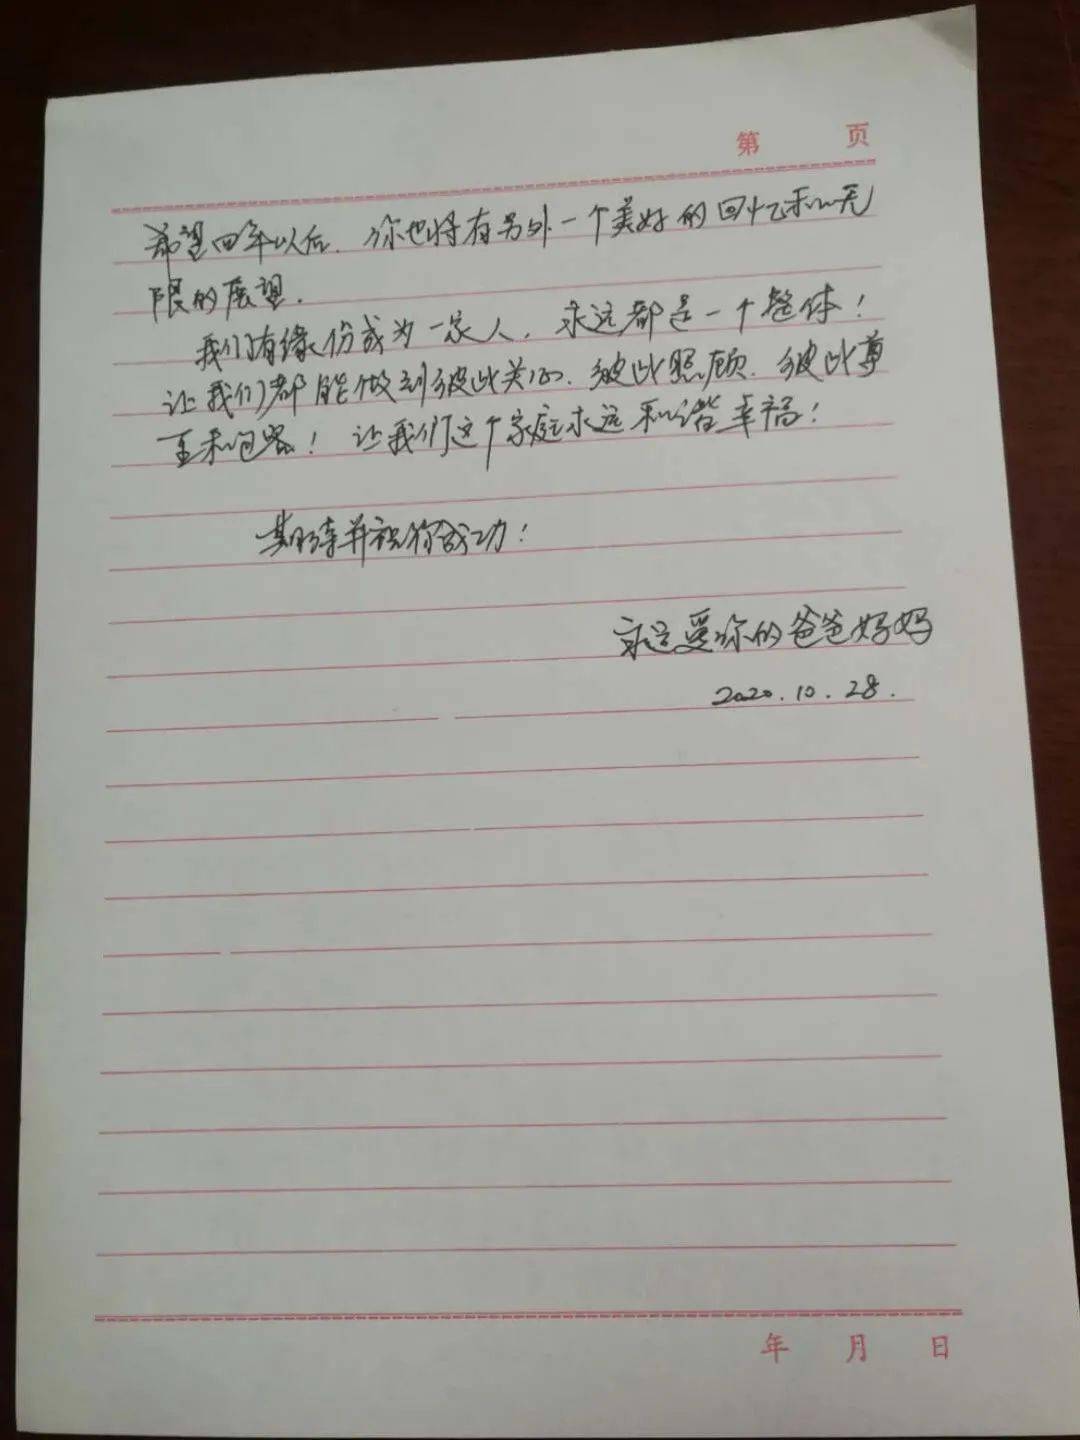 第 页
希望四年以后、你也将有另外一个美好的回忆和无
限的展望.
我们有缘份成为一家人，永远都是一个整体！
让我们都能做到彼此关心、彼此照顾、彼此尊
重和包容！让我们这个家庭永远和谐幸福！
期待并祝你成功！
永远爱你的爸爸妈妈
2020.10.28.
年 月 日